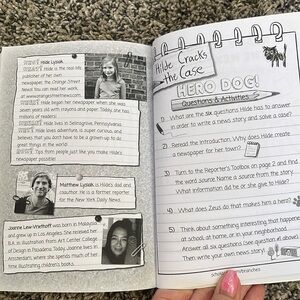 WHO? Hilde Lysiak.
WHAT? Hilde is the real-life
publisher of her own
newspaper, the Orange Street
News! You can read her work
at www.orangestreetnews.com.
WHEN? Hilde began her newspaper when she was
seven years old with crayons and paper. Today, she has
millions of readers!
WHERE? Hilde lives in Selinsgrove, Pennsylvania.
WHY? Hilde loves adventure, is super curious, and
believes that you don't have to be a grown-up to do
great things in the world!
HOW? Tips from people just like you make Hilde's
newspaper possible!
Matthew Lysiak is Hilde's dad and
coauthor. He is a former reporter
for the New York Daily News.
Joanne Lew-Vriethoff was born in Malaysia
and grew up in Los Angeles. She received her
B.A. in illustration from Art Center College
of Design in Pasadena. Today, Joanne lives in
Amsterdam, where she spends much of her
time illustrating children's books.
Hilde Cracks
the Case
HERO DOG!
Questions & Activities
1) What are the six questions Hilde has to answer
in order to write a news story and solve a case?
2) Reread the Introduction. Why does Hilde create
a newspaper for her town?
3) Turn to the Reporter's Toolbox on page 2 and find
the word source. Name a source from the story.
What information did he or she give to Hilde?
4) What does Zeus do that makes him a hero?
5) Think about something interesting that happened
at school, at home, or in your neighborhood.
Answer all six questions (see question 1 above).
Then write your own news story!
scholastic.com/branches